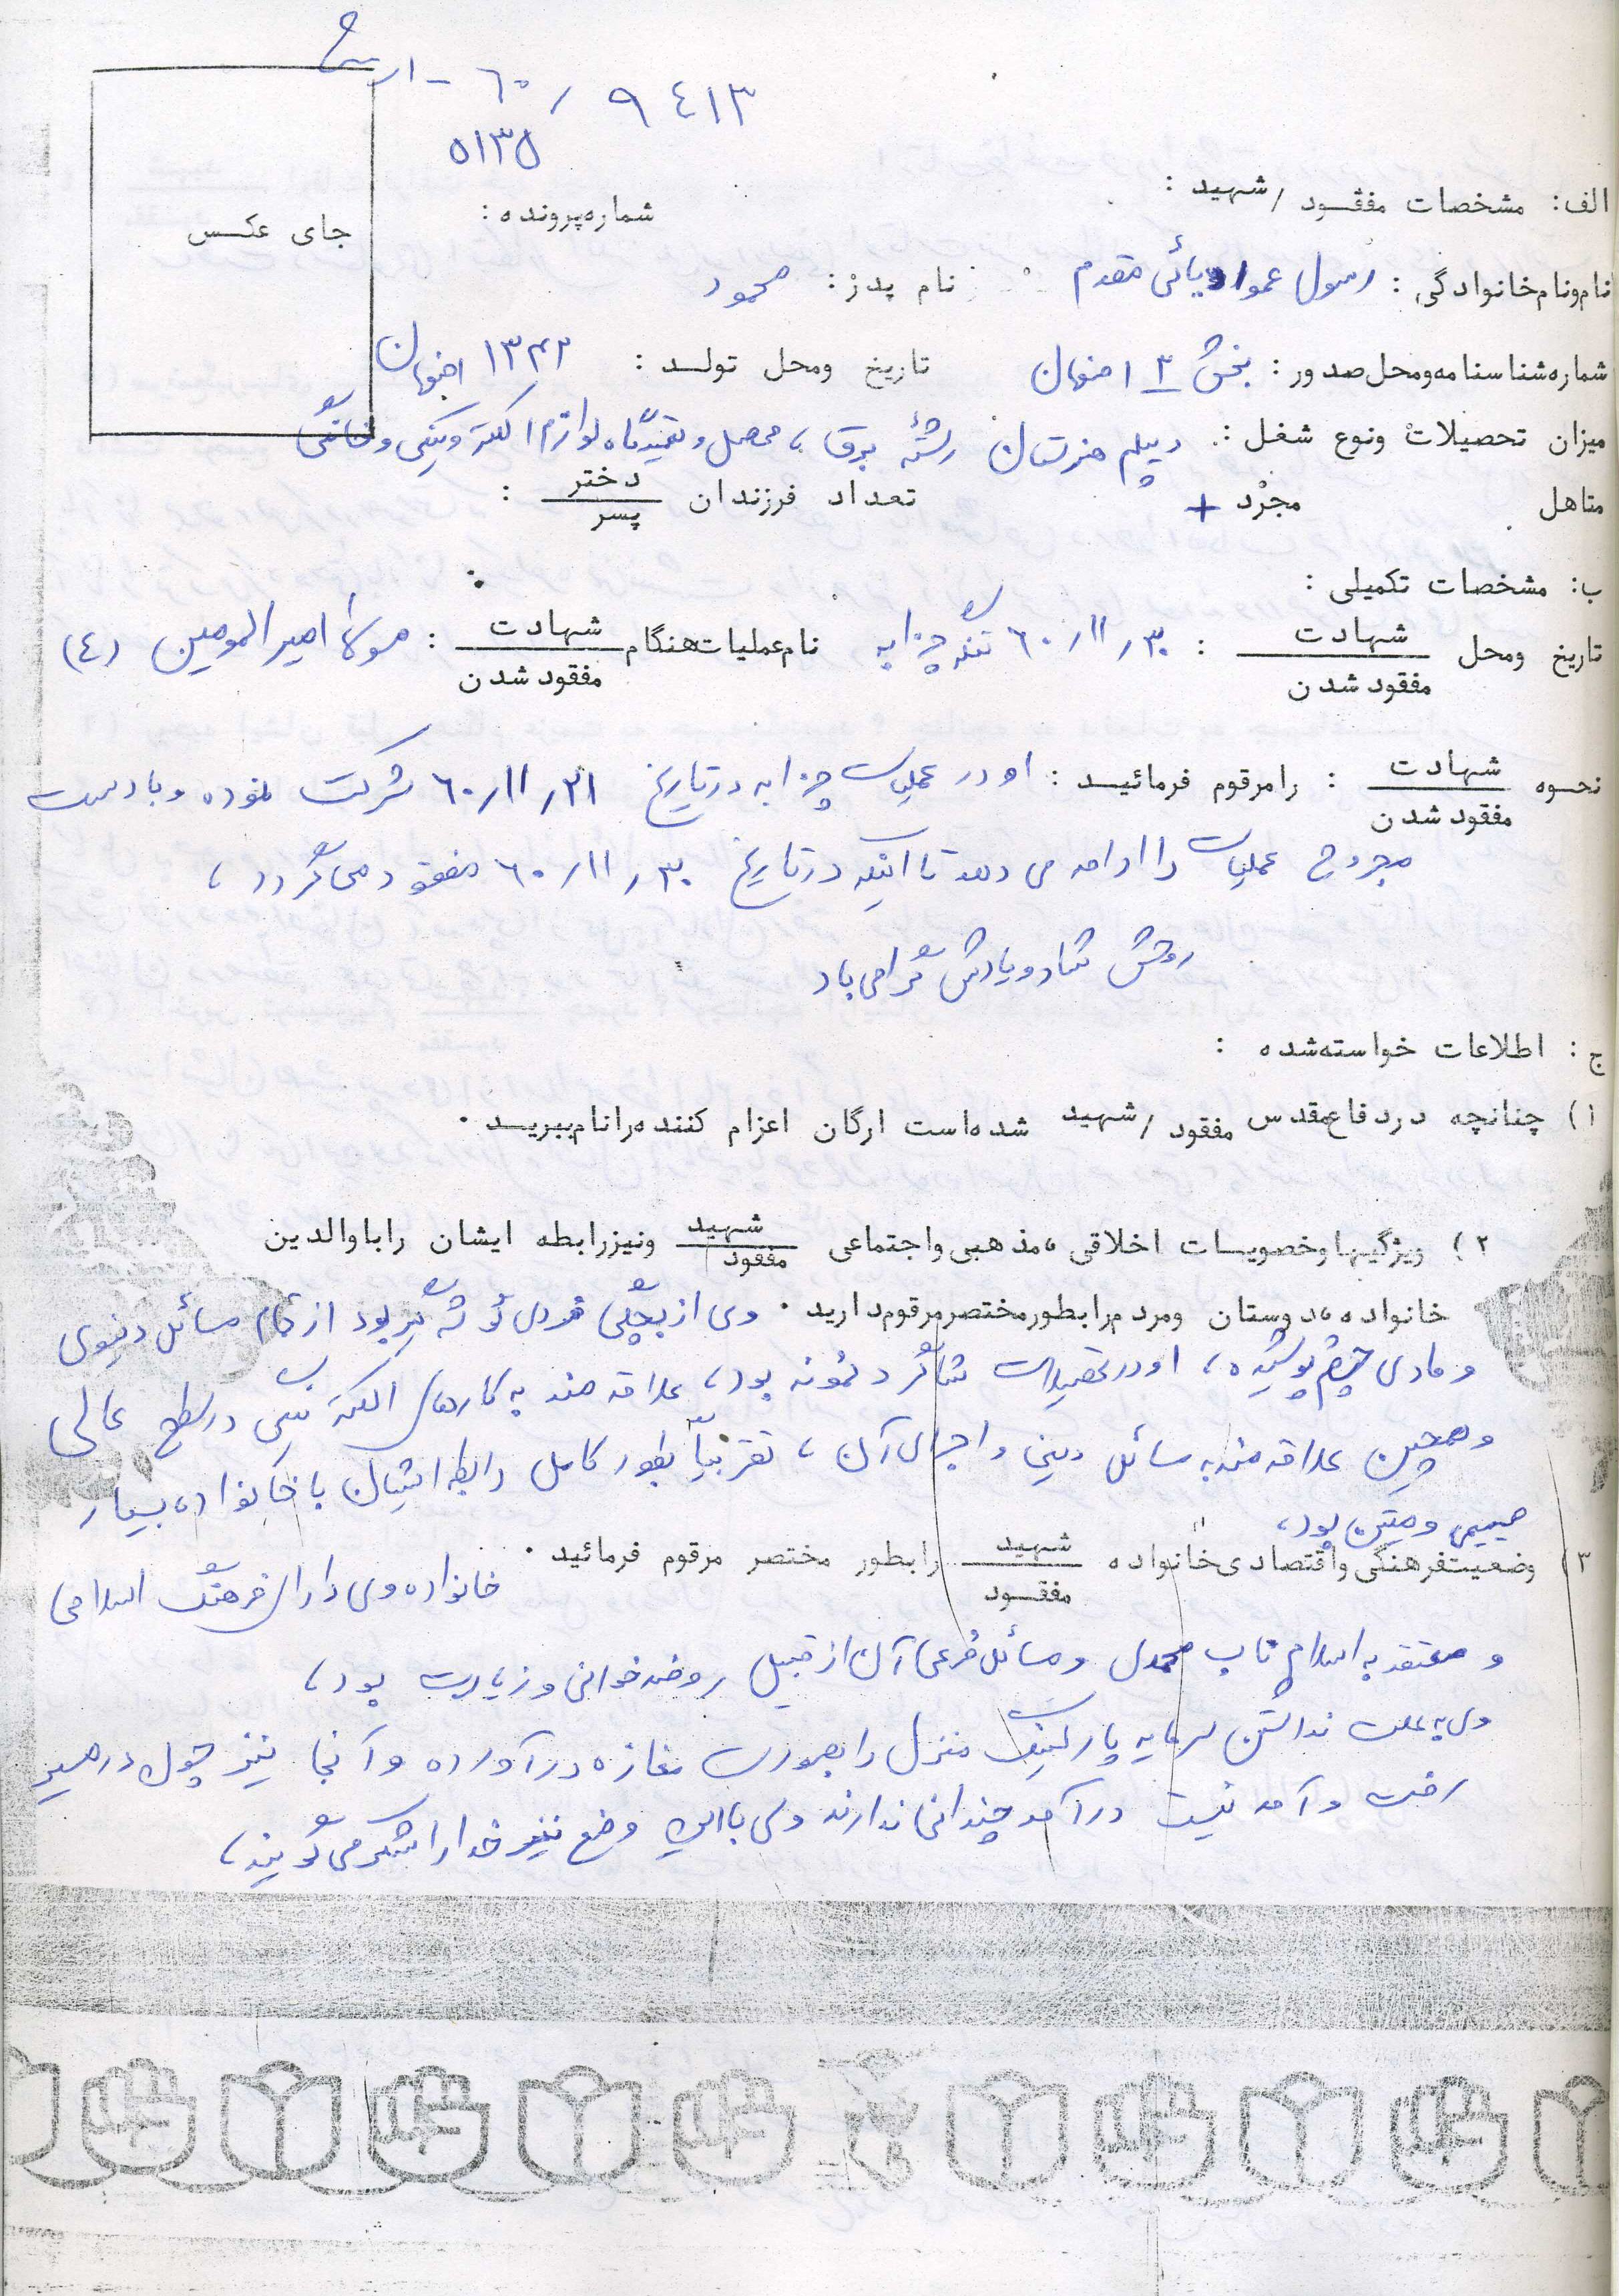 ٩٤١٣ / ٦٠ -
٥١٣٥
الف: مشخصات مفقود / شهید :
شماره پرونده :
جای عکس
نام و نام خانوادگی : رسول عمو اربابی مقدم نام پدر : محمود
شماره شناسنامه و محل صدور : بخش ٣ اصفهان تاریخ و محل تولد : ١٣٤٢ اصفهان
میزان تحصیلات و نوع شغل : دیپلم هنرستان رشته برق ، محصل و تعمیرگاه لوازم الکترونیکی و خانگی
متاهل مجرد + تعداد فرزندان دختر / پسر :
ب: مشخصات تکمیلی :
تاریخ و محل شهادت / مفقود شدن : ٦٠/١١/٣٠ تنگه چزابه نام عملیات هنگام شهادت / مفقود شدن : مولا امیرالمومنین (ع)
نحوه شهادت / مفقود شدن : را مرقوم فرمائید : او در عملیات چزابه در تاریخ ٦٠/١١/٢١ شرکت نموده و با دست
مجروح عملیات را ادامه می دهد تا اینکه در تاریخ ٦٠/١١/٣٠ مفقود می گردد ،
روحش شاد و یادش گرامی باد
ج : اطلاعات خواسته شده :
١) چنانچه در دفاع مقدس مفقود / شهید شده است ارگان اعزام کننده را نام ببرید .
٢) ویژگیها و خصوصیات اخلاقی ، مذهبی و اجتماعی شهید / مفقود و نیز رابطه ایشان را با والدین
خانواده ، دوستان و مردم را بطور مختصر مرقوم دارید . وی از بچگی فردی گوشه گیر بود از تمام مسائل دنیوی
و مادی چشم پوشیده ، او در تحصیلات شاگرد نمونه بود ، علاقه مند به کارهای الکترونیکی در سطح عالی
و همچنین علاقه مند به مسائل دینی و اجرای آن ، تقریباً بطور کامل رابطه ایشان با خانواده بسیار
صمیمی و متین بود ،
٣) وضعیت فرهنگی و اقتصادی خانواده شهید / مفقود را بطور مختصر مرقوم فرمائید . خانواده وی دارای فرهنگ اسلامی
و معتقد به اسلام ناب محمدی و مسائل فرعی آن از قبیل روضه خوانی و زیارت بود ،
وی به علت نداشتن سرمایه پارکینگ منزل را بصورت مغازه در آورده و آنجا نیز چون در مسیر
رفت و آمد نیست درآمد چندانی ندارند ولی با این وضع نیز خدا را شکر می گویند ،